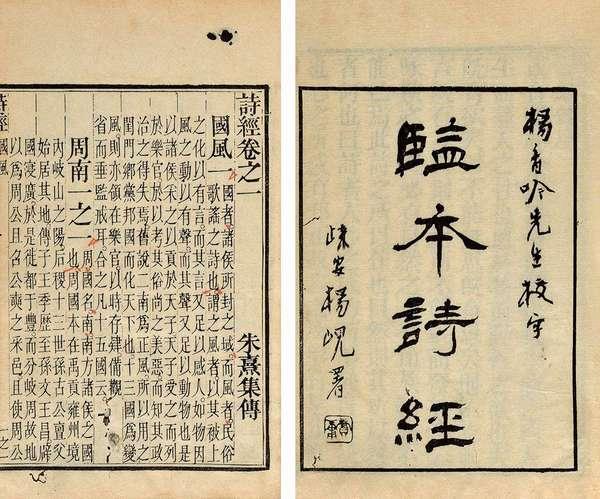 楊香吟先生校字
監本詩經
歸安楊峴署
詩經卷之一 朱熹集傳
國風一 國者諸侯所封之域而風者民俗
歌謠之詩也謂之風者以其被上
之化以有言而其言又足以感人如物因
風之動以有聲而其聲又足以動物也是
以諸侯采之以貢於天子天子受之而列
於樂官於以考其俗尚之美惡而知其政
治之得失焉舊說二南爲正風所以用之
閨門鄉黨邦國而化天下也十三國爲變
風則亦領在樂官以時存肄備觀
省而垂監戒耳合之凡十五國云
周南一之一 周國名南南方諸侯之國
也周國本在禹貢雍州境
內岐山之陽后稷十三世孫古公亶父
始居其地傳子王季歷至孫文王昌辟
國寖廣於是徙都于豐而分岐周故地
以爲周公旦召公奭之采邑且使周公
詩經 國風